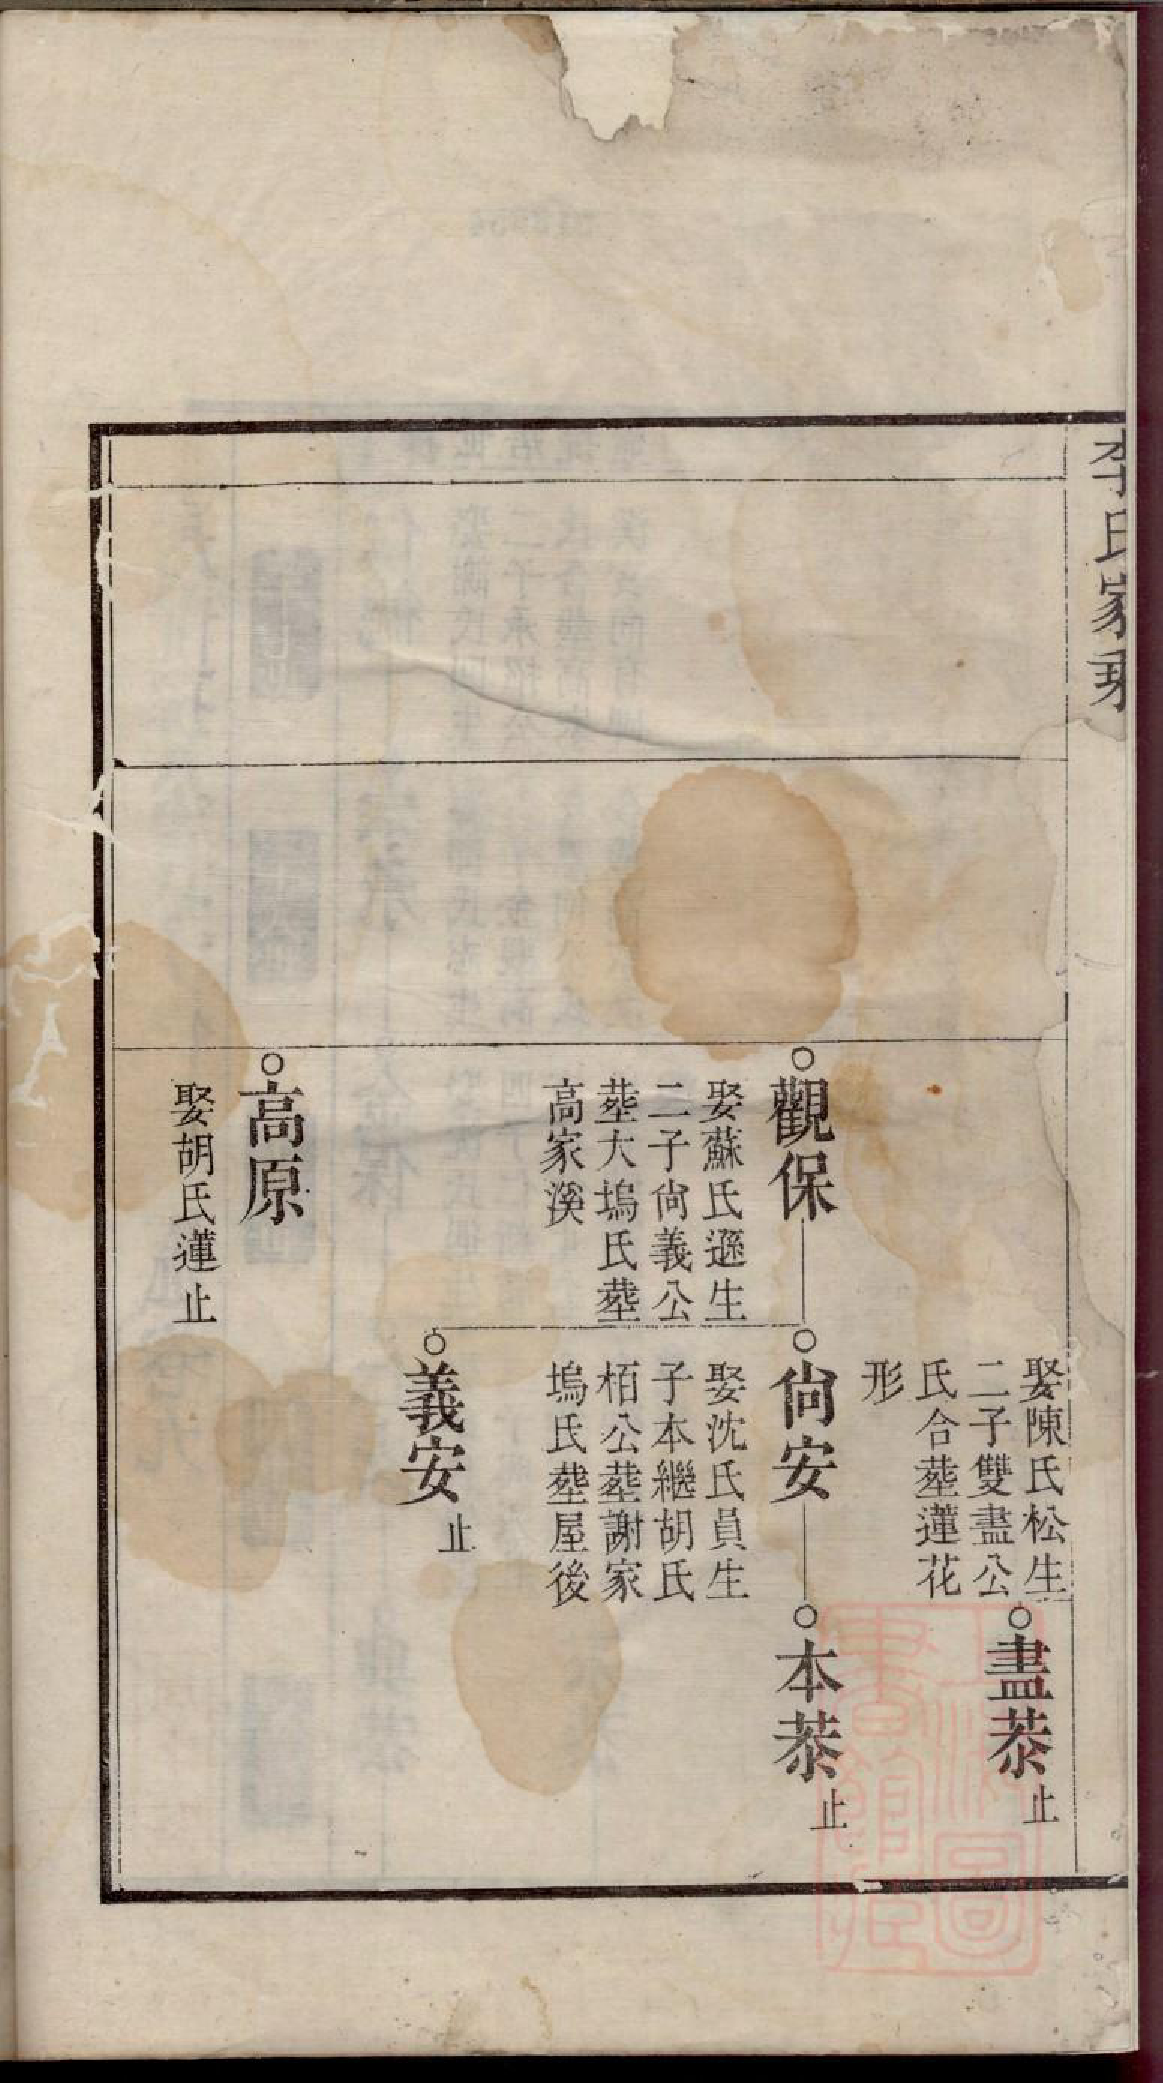 李氏家乘
娶陳氏松生
二子雙盡公
氏合塟蓮花
形
盡恭止
觀保
娶蘇氏遜生
二子尙義公
塟大塢氏塟
高家溪
尙安
娶沈氏員生
子本繼胡氏
栢公塟謝家
塢氏塟屋後
本恭止
義安止
高原
娶胡氏蓮止
上海圖書館藏